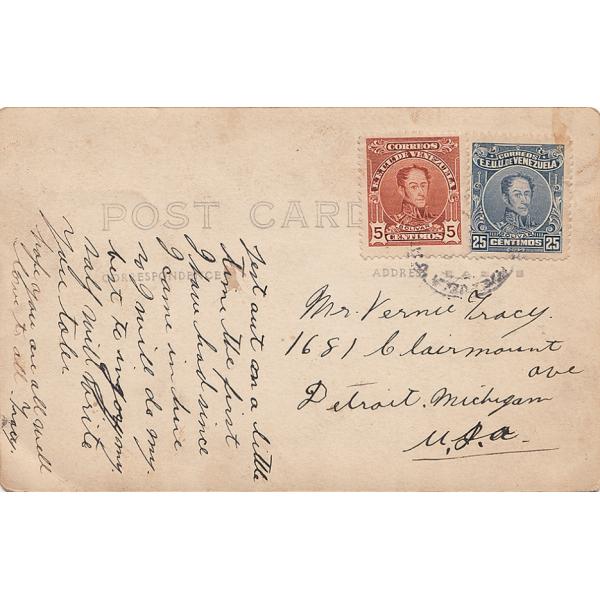 CORREOS
E.E.U.U. DE VENEZUELA
BOLIVAR
5 5
CENTIMOS
CORREOS
E.E.U.U. DE VENEZUELA
BOLIVAR
25 25
CENTIMOS
POST CARD
CORRESPONDENCE
ADDRESS
Just out on a little
time the first
I have had since
I came in here
so I will do my
best to enjoy my
self will write
you later
hope you are all well
Love to all
Mr. Vernie Tracy.
1681 Clairmount
ave
Detroit. Michigan
U.S.a.